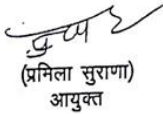 (प्रमिला सुराणा)
आयुक्त